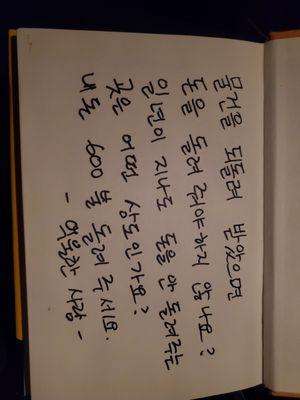 물건을 되돌려 받았으면
돈을 돌려 줘야 하지 않나요?
일년이 지나도 돈을 안 돌려주는
곳은 어떤 상도인가요?
내 돈 600불 돌려 주세요.
- 억울한 사람 -